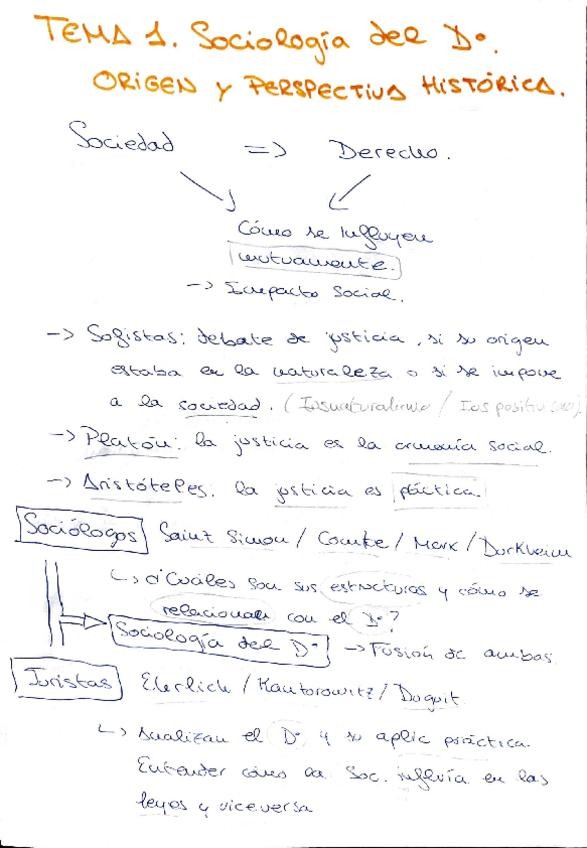 TEMA 1. Sociología del Dº.
ORIGEN Y PERSPECTIVA HISTÓRICA.
Sociedad => Derecho.
Cómo se influyen
mutuamente.
-> Impacto Social.
-> Sofistas: debate de justicia, si su origen
estaba en la naturaleza o si se impone
a la sociedad. (Iusnaturalismo / Ius positivismo).
-> Platón: la justicia es la armonía social.
-> Aristóteles: la justicia es práctica.
Sociólogos Saint Simon / Comte / Marx / Durkheim
↳ ¿Cuáles son sus estructuras y cómo se
relacionan con el Dº?
Sociología del Dº -> Fusión de ambas
Juristas Ehrlich / Kantorowitz / Duguit
↳ Analizan el Dº y su aplic práctica.
Entender cómo la Soc. influía en las
leyes y viceversa